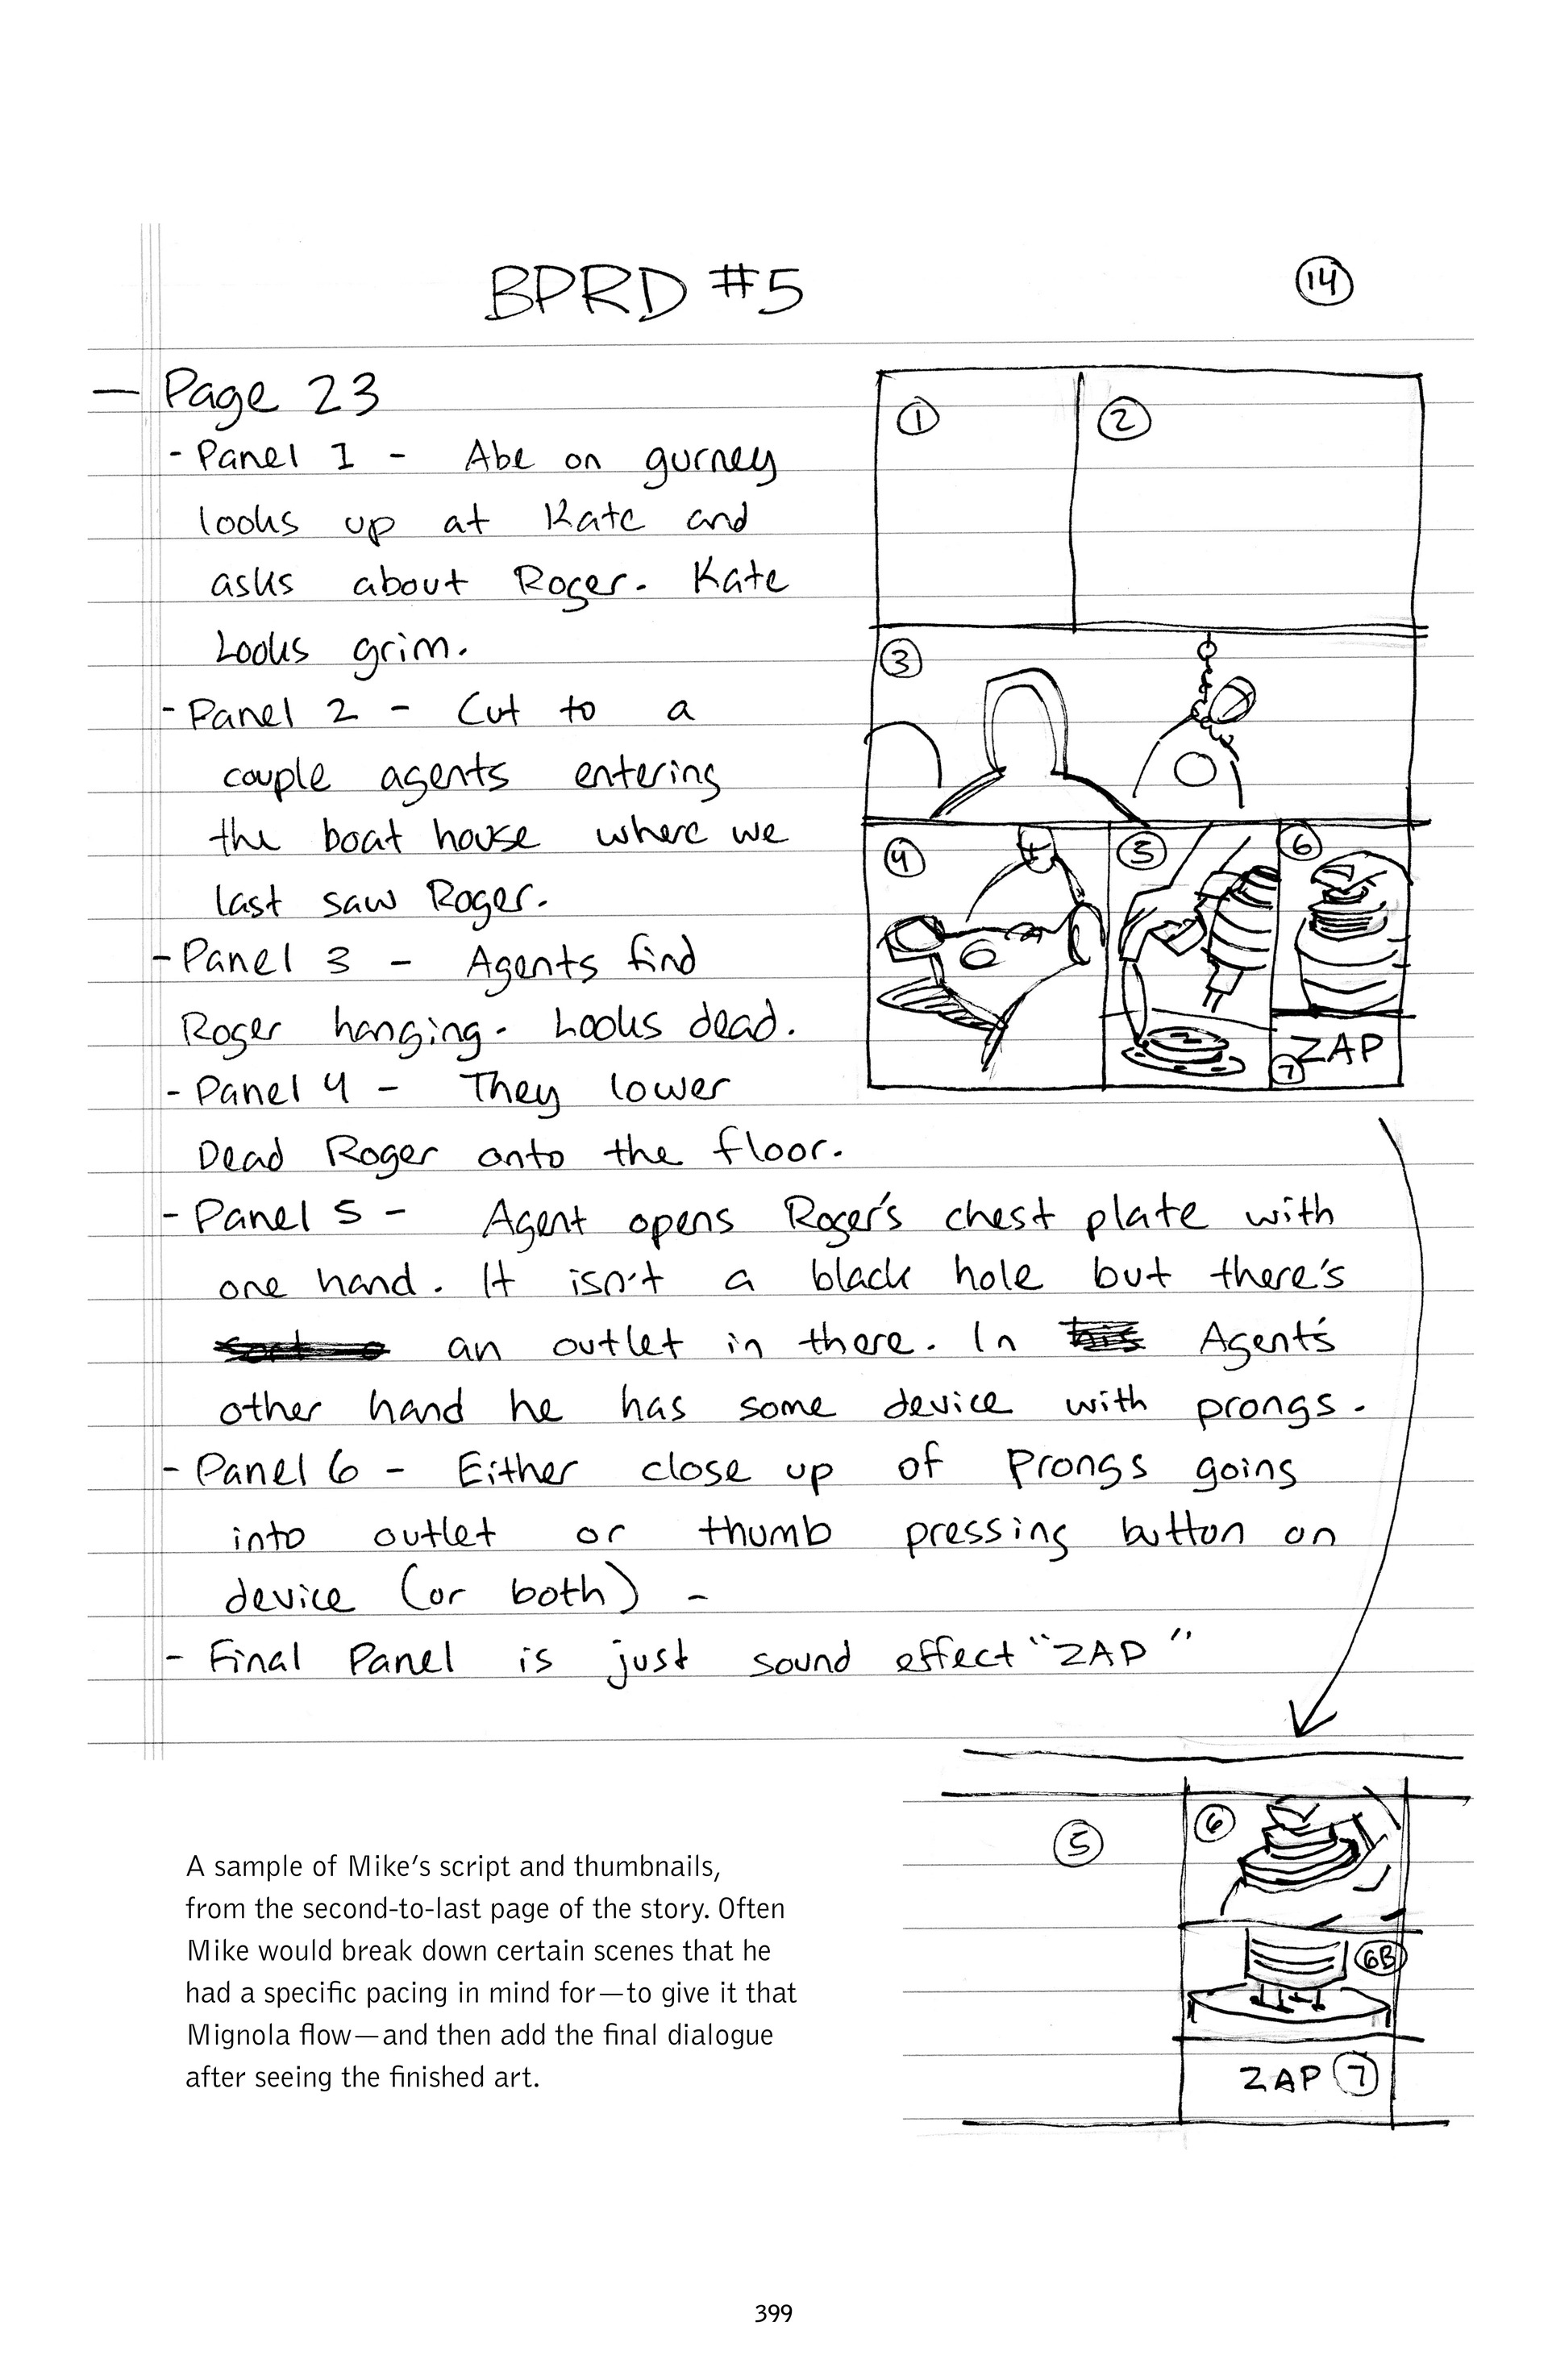 BPRD #5
14
— Page 23
- Panel 1 - Abe on gurney
looks up at Kate and
asks about Roger. Kate
Looks grim.
- Panel 2 - Cut to a
couple agents entering
the boat house where we
last saw Roger.
- Panel 3 - Agents find
Roger hanging. Looks dead.
- Panel 4 - They lower
Dead Roger onto the floor.
- Panel 5 - Agent opens Roger's chest plate with
one hand. It isn't a black hole but there's
an outlet in there. In Agent's
other hand he has some device with prongs.
- Panel 6 - Either close up of Prongs going
into outlet or thumb pressing button on
device (or both) -
- Final Panel is just sound effect "ZAP"
1
2
3
4
5
6
7
ZAP
5
6
6B
ZAP 7
A sample of Mike's script and thumbnails,
from the second-to-last page of the story. Often
Mike would break down certain scenes that he
had a specific pacing in mind for—to give it that
Mignola flow—and then add the final dialogue
after seeing the finished art.
399